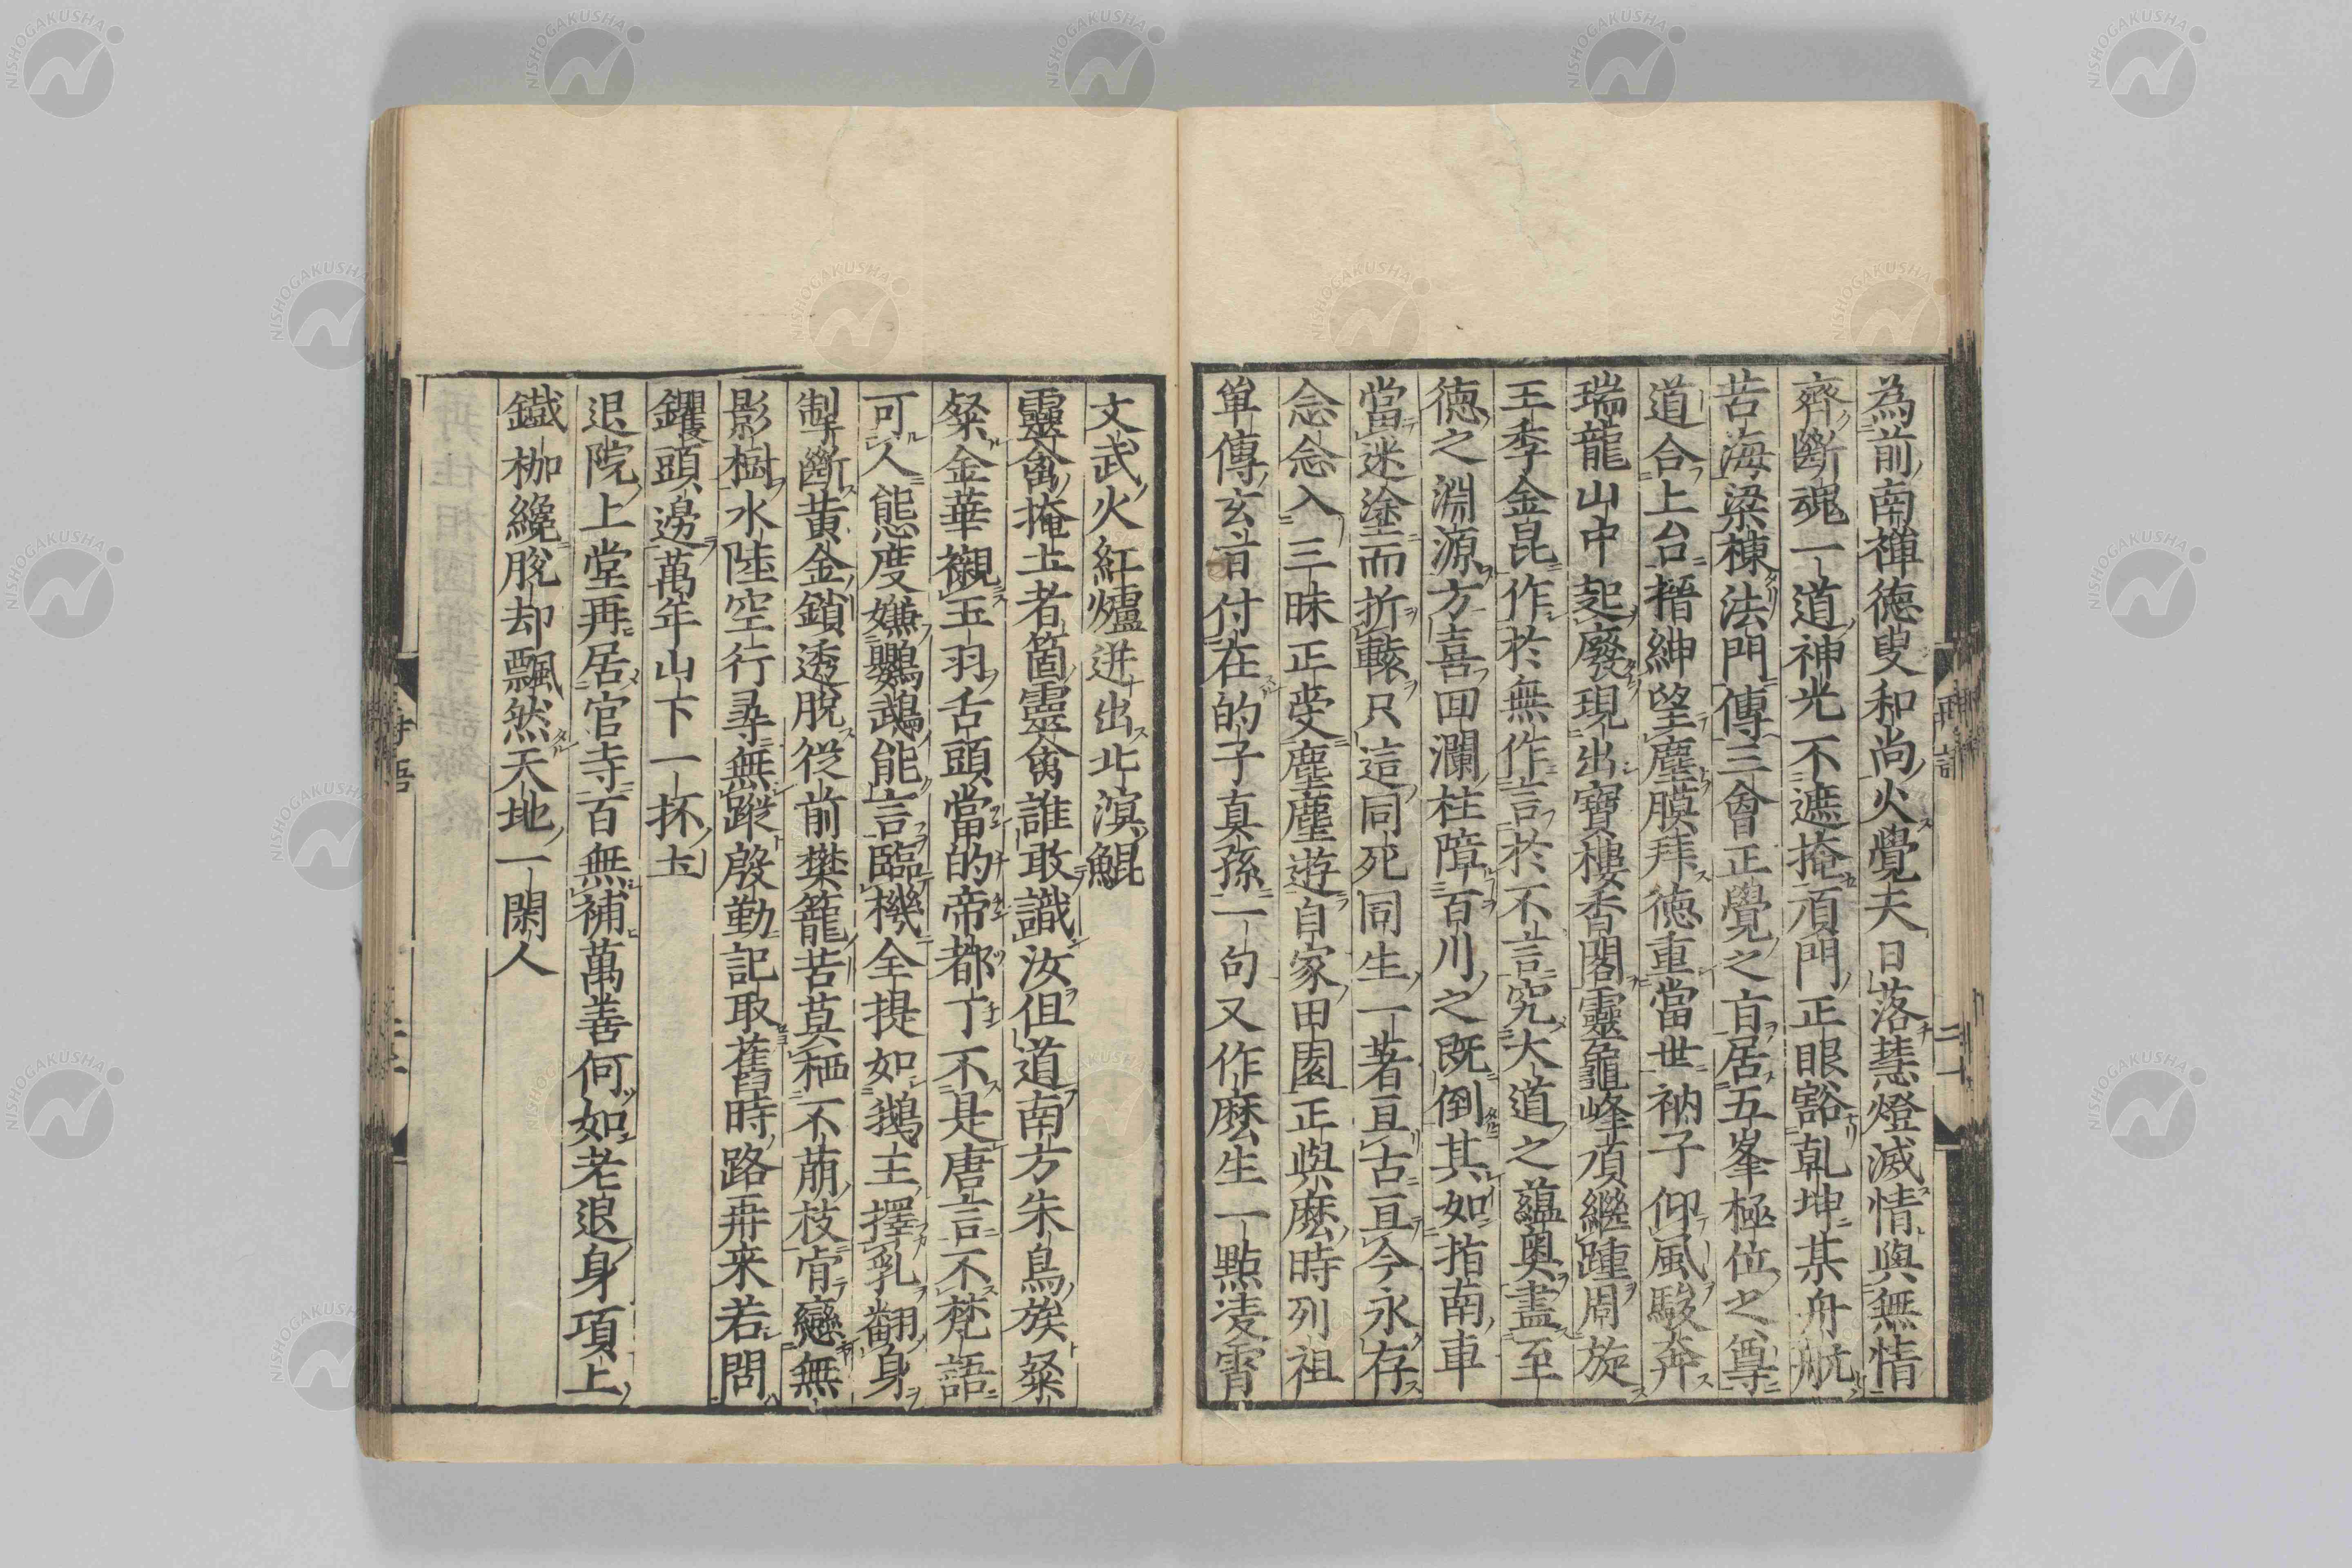 為前南禪德叟和尚火覺夫日落慧燈滅情與無情
齊斷魂一道神光不遮掩頂門正眼豁乾坤某舟航
苦海梁棟法門傳三會正覺之盲居五峯極位之尊
道合上台搢紳望塵膜拜德重當世衲子仰風駿奔
瑞龍山中起廢現出寶樓香閣靈龜峰頂繼踵周旋
王季金昆作於無作言於不言究大道之蘊奥盡至
德之淵源方喜回瀾柱障百川之既倒其如指南車
當迷塗而折轅只這同死同生一著亘古亘今永存
念念入三昧正受塵塵遊自家田園正與麽時列祖
單傳玄旨付在的子真孫一句又作麽生一點凌霄
文武火紅爐迸出北溟鯤
靈禽掩土者箇靈禽誰敢識汝但道南方朱鳥族粲
粲金華襯玉羽舌頭當的帝都了不是唐言不梵語
可人態度嫌鸚鵡能言臨機全提如鵝主擇乳翻身
掣斷黄金鎖透脫從前樊籠苦莫栖不萠枝肯戀無
影樹水陸空行尋無蹤慇勤記取舊時路再来若問
钁頭邊萬年山下一抔土
退院上堂再居官寺百無補萬善何如老退身項上
鐵枷纔脫却飄然天地一閑人
NISHOGAKUSHA